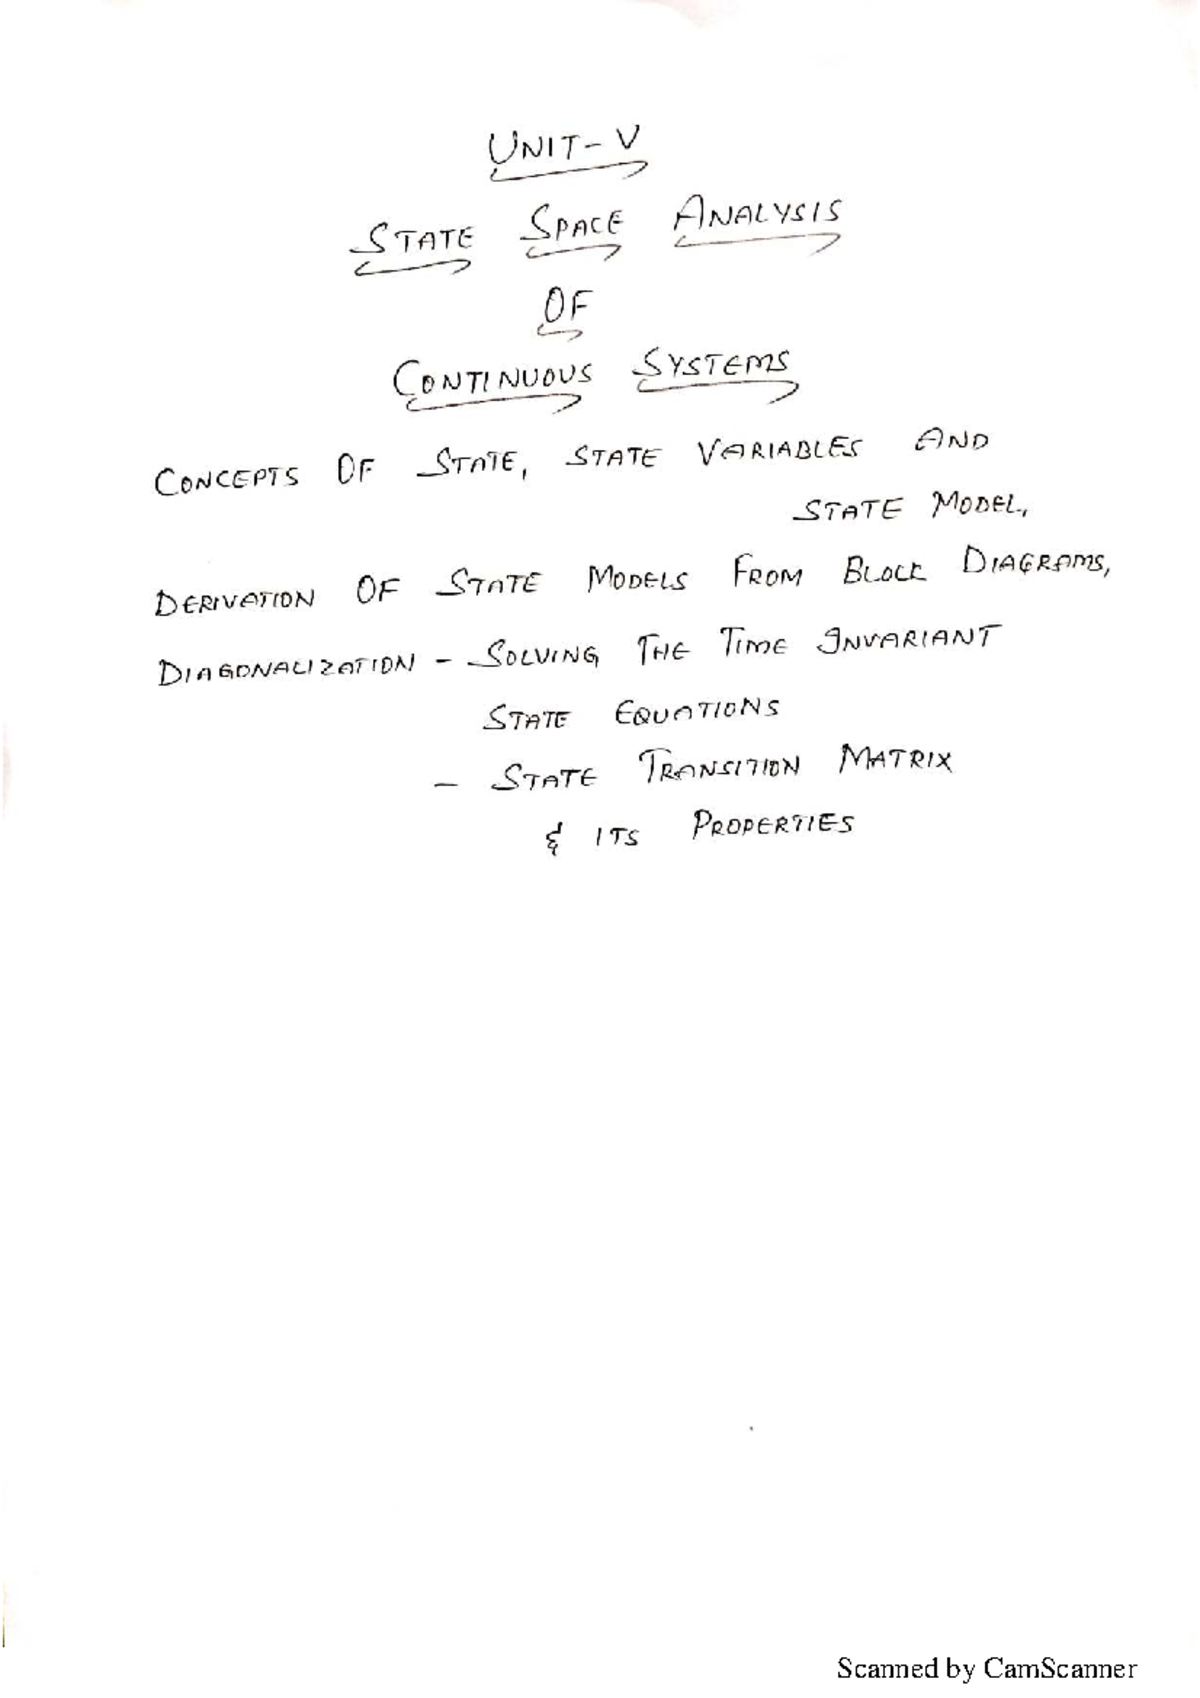 UNIT-V
STATE SPACE ANALYSIS
OF
CONTINUOUS SYSTEMS
CONCEPTS OF STATE, STATE VARIABLES AND
STATE MODEL,
DERIVATION OF STATE MODELS FROM BLOCK DIAGRAMS,
DIAGONALIZATION - SOLVING THE TIME INVARIANT
STATE EQUATIONS
- STATE TRANSITION MATRIX
& ITS PROPERTIES
Scanned by CamScanner